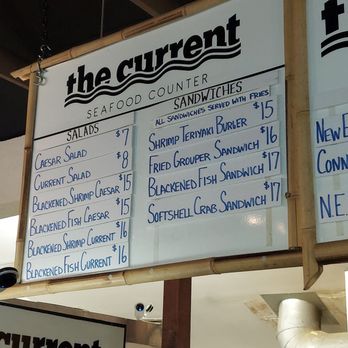 the current
SEAFOOD COUNTER
SALADS
CAESAR SALAD $7
CURRENT SALAD $8
BLACKENED SHRIMP CAESAR $15
BLACKENED FISH CAESAR $15
BLACKENED SHRIMP CURRENT $16
BLACKENED FISH CURRENT $16
SANDWICHES
ALL SANDWICHES SERVED WITH FRIES
SHRIMP TERIYAKI BURGER $15
FRIED GROUPER SANDWICH $16
BLACKENED FISH SANDWICH $17
SOFTSHELL CRAB SANDWICH $17
NEW
CONN
N.E.
current